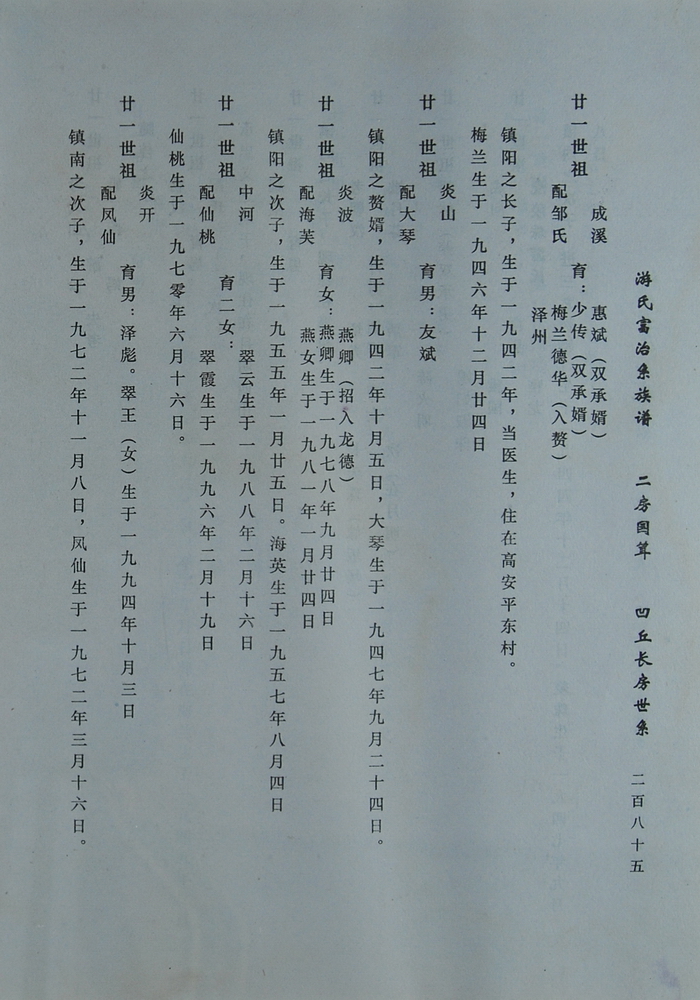 游氏富治系族谱 二房国算 凹丘长房世系 二百八十五
成溪
廿一世祖
配邹氏
惠斌（双承婿）
育：少传（双承婿）
梅兰德华（入赘）
泽州
镇阳之长子，生于一九四二年，当医生，住在高安平东村。
梅兰生于一九四六年十二月廿四日
炎山
廿一世祖 育男：友斌
配大琴
镇阳之赘婿，生于一九四二年十月五日，大琴生于一九四七年九月二十四日。
炎波
廿一世祖
配海芙
燕卿（招入龙德）
育女：燕卿生于一九七八年九月廿四日
燕女生于一九八一年一月廿四日
镇阳之次子，生于一九五五年一月廿五日。海英生于一九五七年八月四日
中河
廿一世祖 育二女：
配仙桃
翠云生于一九八八年二月十六日
翠霞生于一九九六年二月十九日
仙桃生于一九七零年六月十六日。
炎开
廿一世祖 育男：泽彪。翠王（女）生于一九九四年十月三日
配凤仙
镇南之次子，生于一九七二年十一月八日，凤仙生于一九七二年三月十六日。